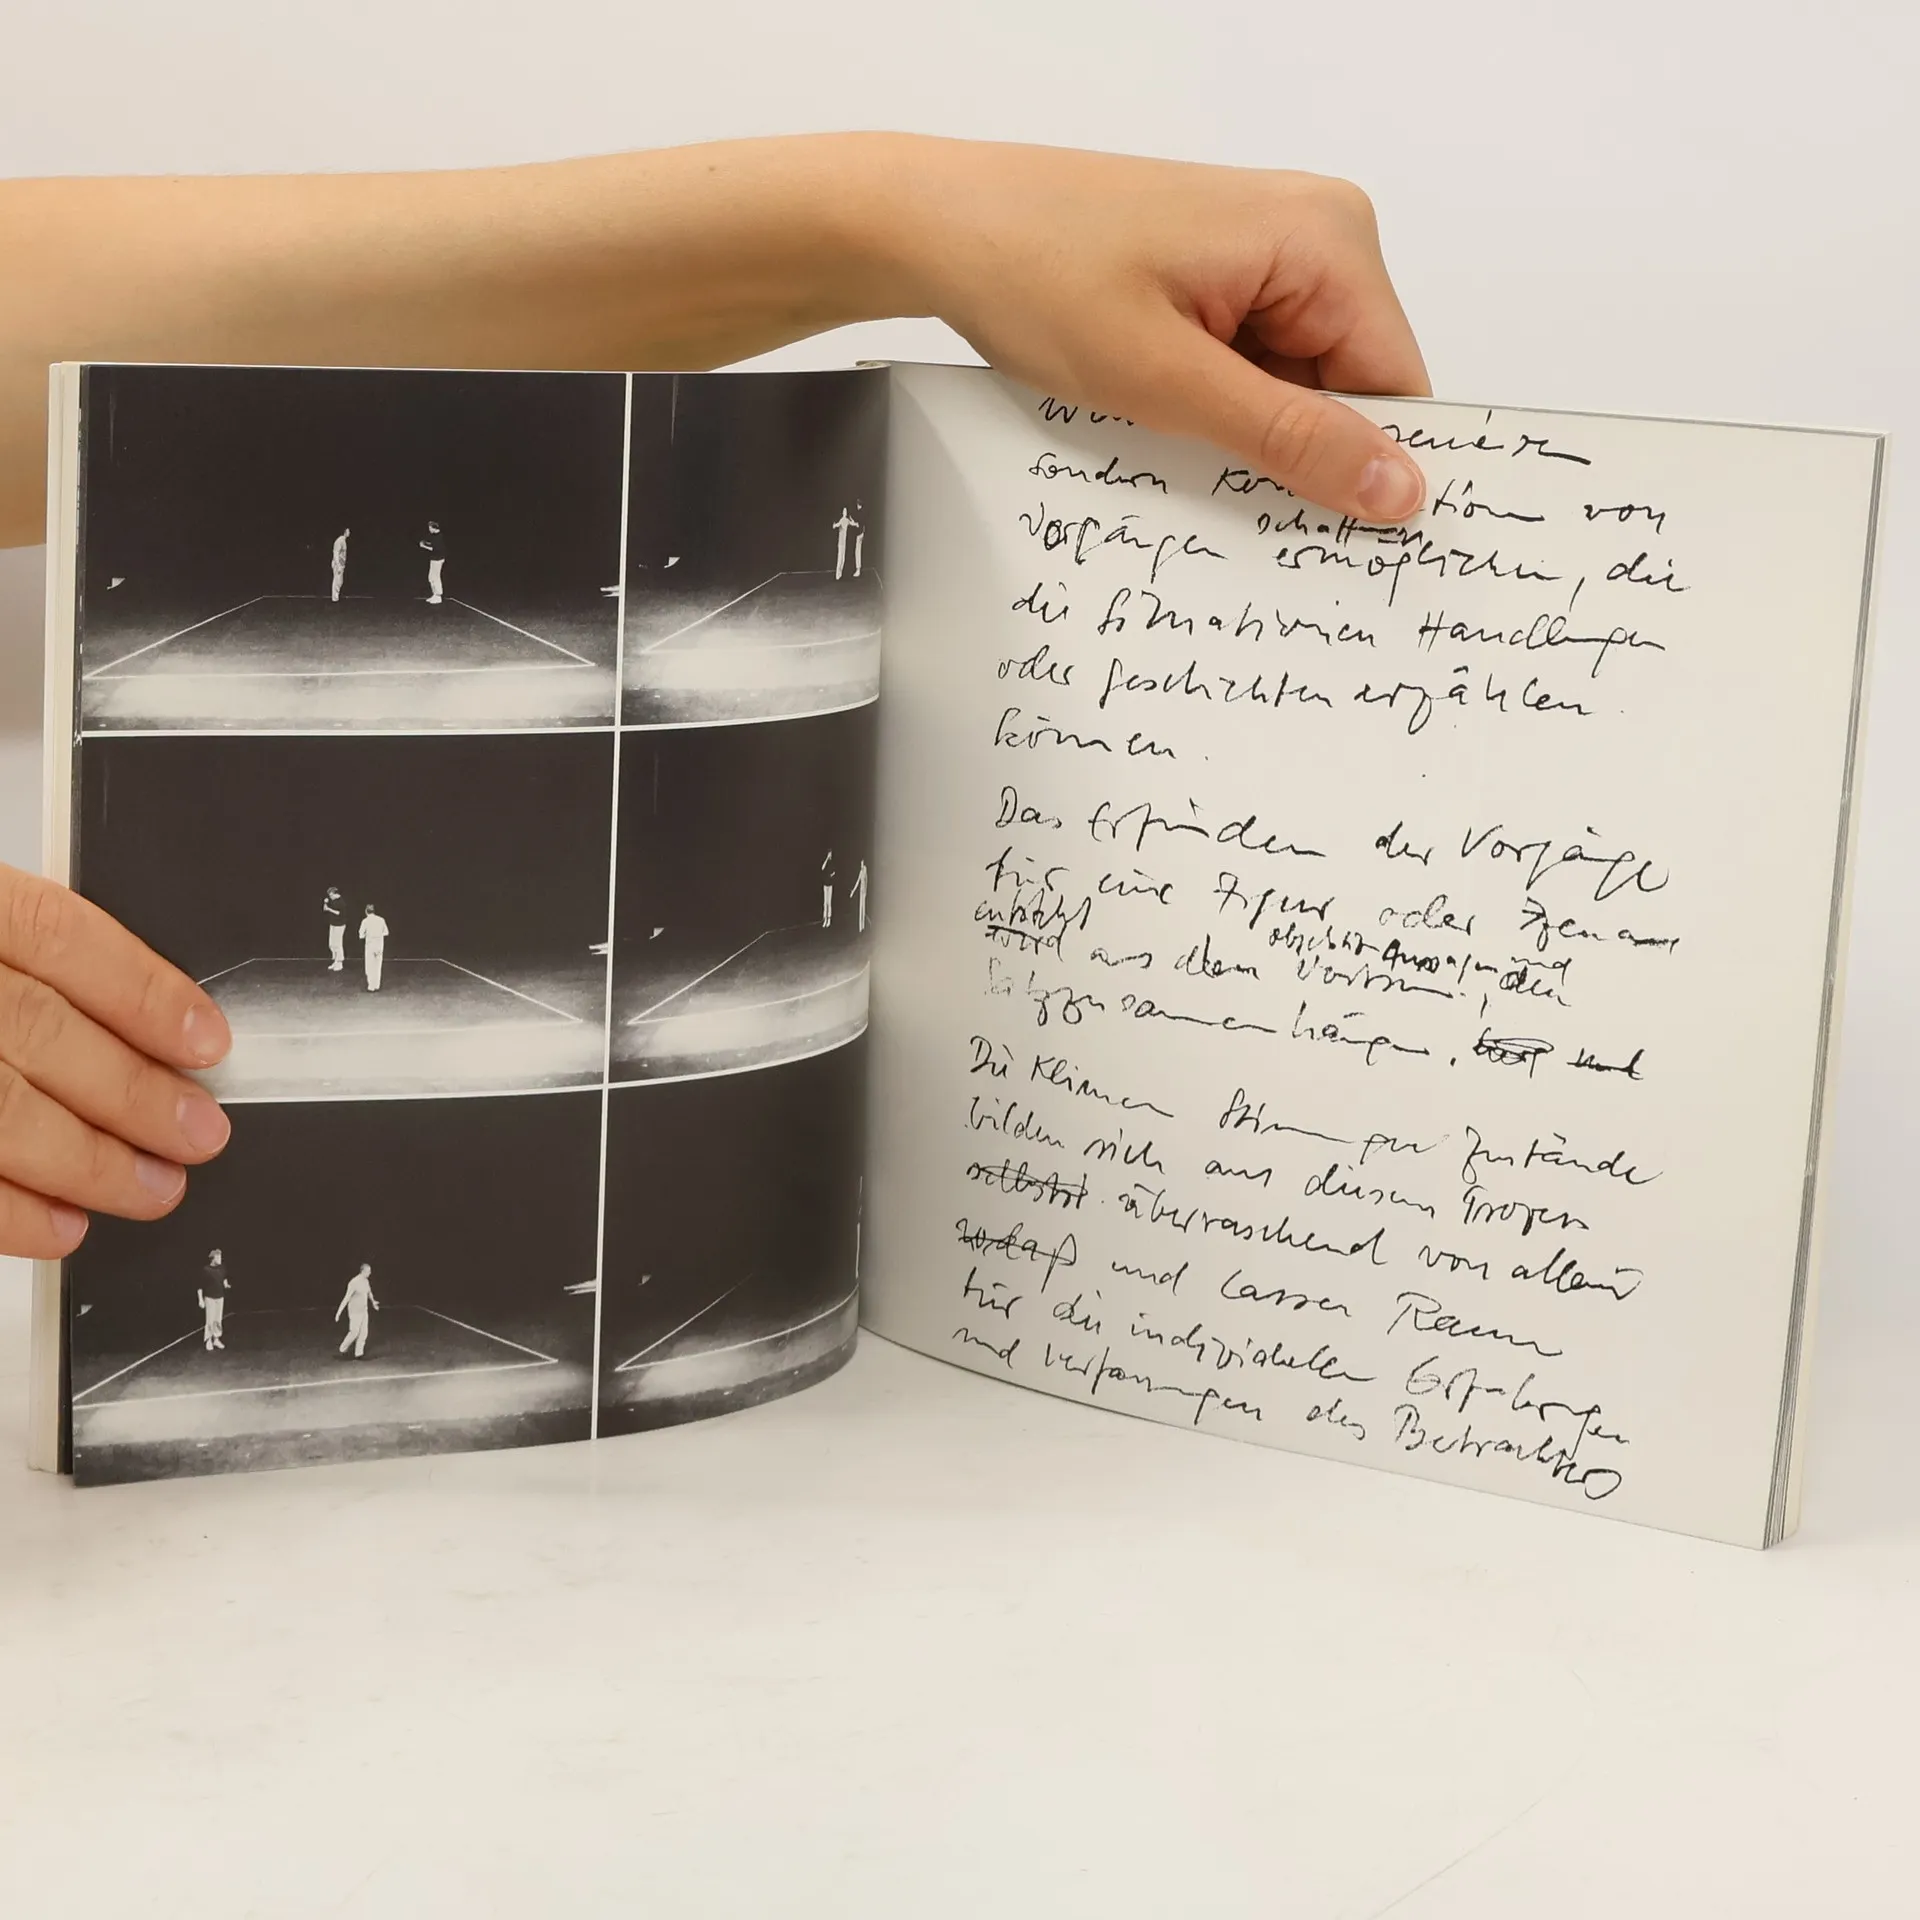 sondern von
schaffen
Vorgängen ermöglichen, die
die Situationen Handlungen
oder Geschichten erzählen
können.
Das Erfinden der Vorgänge
für eine Figur oder
entsteht
wird aus dem und den
Satzzusammenhängen. und
Die Klimen Stimmungen Zustände
bilden sich aus diesen
selbst überraschend von allein
sodaß und lassen Raum
für die individuellen Erfahrungen
und Verfassungen des Betrachters